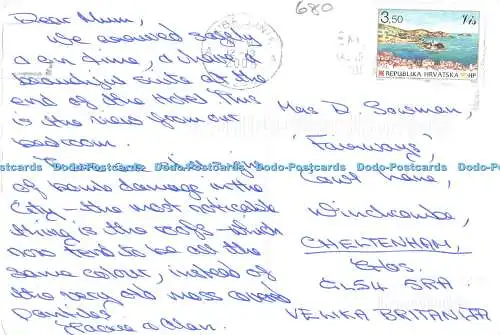 680
Dear Mum,
We arrived safely
& on time, & have a
beautiful suite at the
end of the Hotel. This
is the view from our
bedroom.
of bomb damage in the
City – the most noticeable
thing is the roofs – which
now tend to be all the
same colour, instead of
the very old moss
& Alan.
3,50
REPUBLIKA HRVATSKA HP
Mrs D.
'Fairways'
Lane,
Winchcombe,
CHELTENHAM,
Glos.
GL54 5RA
VELIKA BRITANIJA
Dodo-Postcards Dodo-Postcards Dodo-Postcards Dodo-Postcards Dodo-Postcards